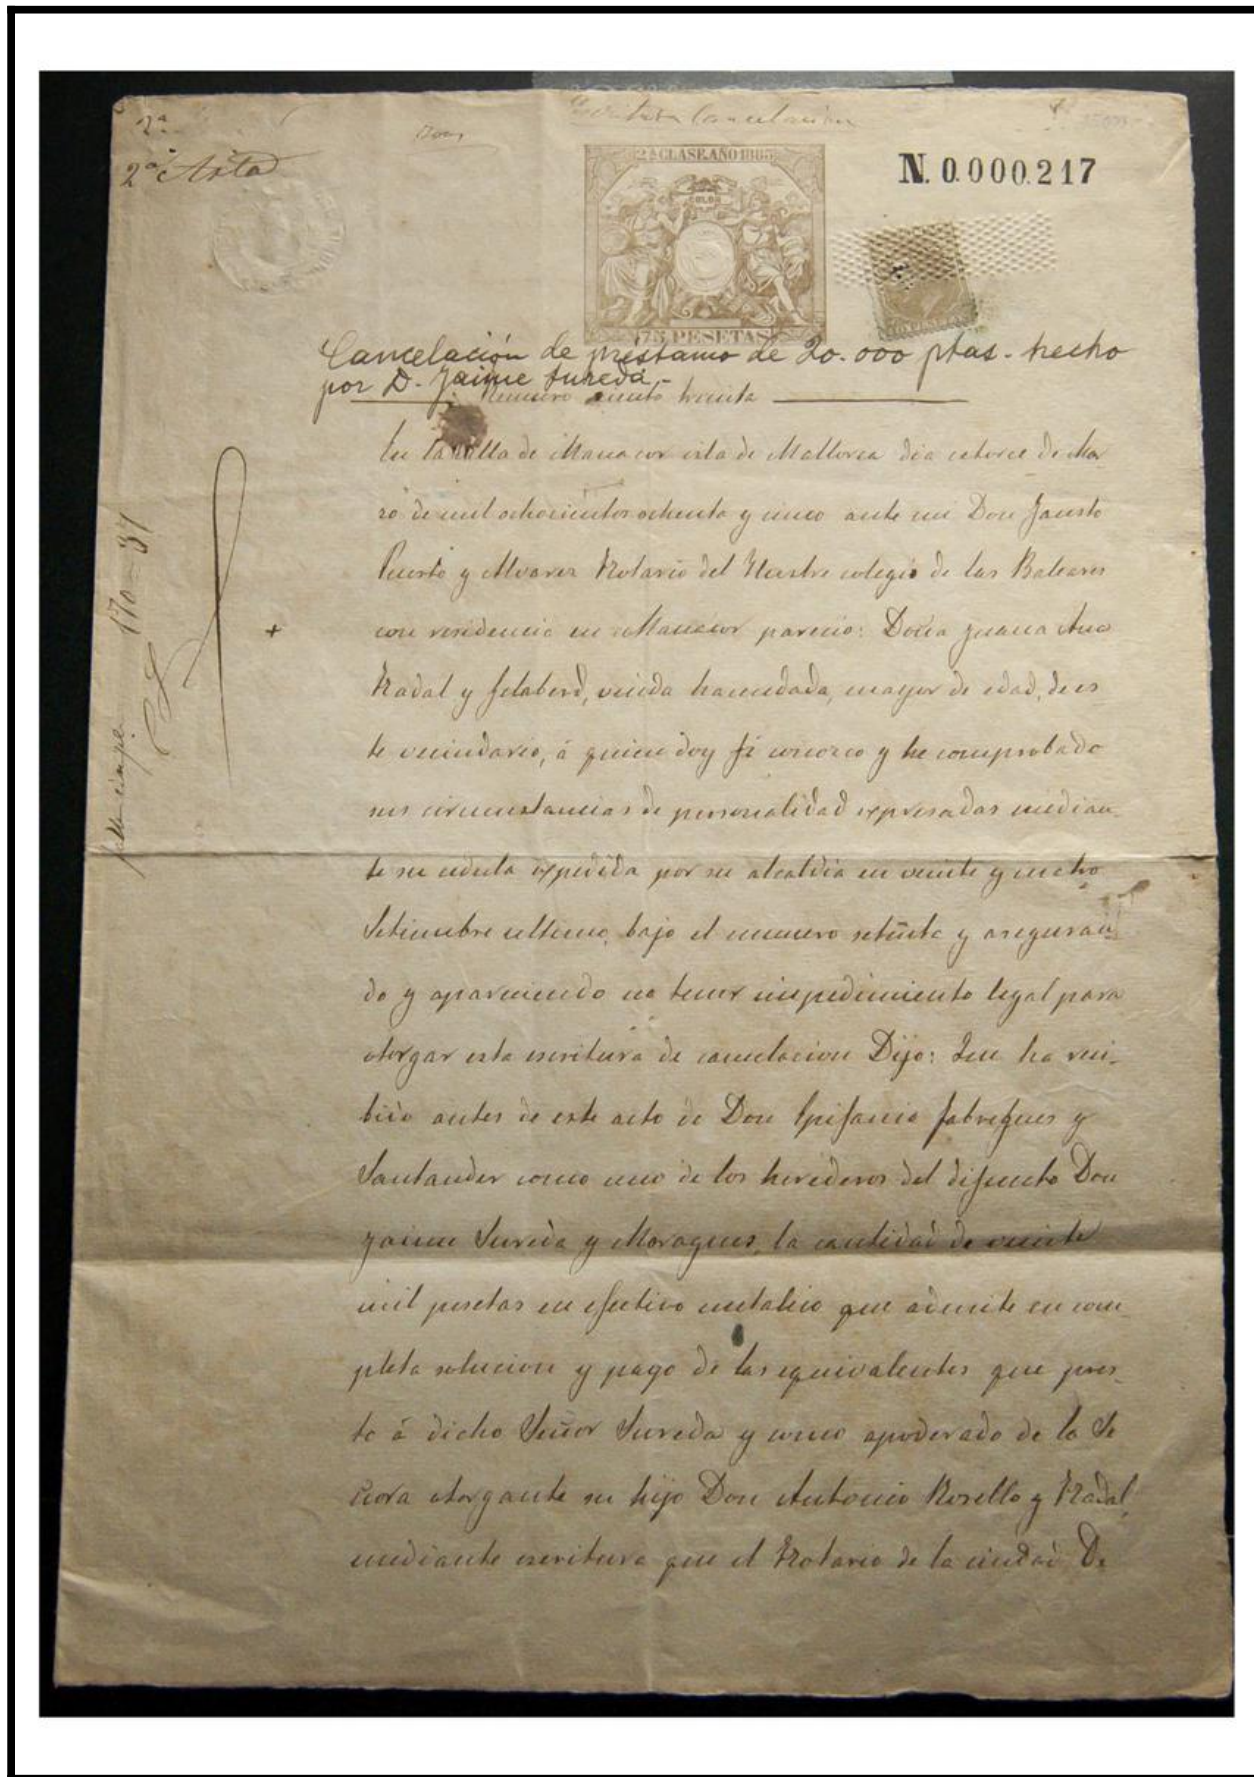 Escritura Cancelacion
2ª
2ª Asta
2ª CLASE. AÑO 1885
N. 0.000.217
75 PESETAS
Cancelación de préstamo de 20.000 ptas. hecho
por D. Jaime Sureda.-
Numero ciento treinta
En la villa de Manacor isla de Mallorca dia catorce de Mar
zo de mil ochocientos ochenta y cinco ante mi Don Fausto
Puerto y Alvarez Notario del Ilustre colegio de las Baleares
con residencia en Manacor parecio: Doña Juana Ana
Nadal y Gelaberd, viuda hacendada, mayor de edad, de es
te vecindario, á quien doy fé conozco y he comprobado
sus circunstancias de personalidad expresadas median-
te su cedula expedida por su alcaldia en veinte y ocho
Setiembre ultimo, bajo el numero setenta y aseguran
do y apareciendo no tener impedimiento legal para
otorgar esta escritura de cancelacion Dijo: Que ha reci-
bido antes de este acto de Don Epifanio Fabregues y
Santander como uno de los herederos del difunto Don
Jaime Sureda y Moragues, la cantidad de veinte
mil pesetas en efectivo metalico que admite en com-
pleta solucion y pago de las equivalentes que pres-
to á dicho Señor Sureda y como apoderado de la Se
ñora otorgante su hijo Don Antonio Rosello y Nadal,
mediante escritura que el Notario de la ciudad De
170-37